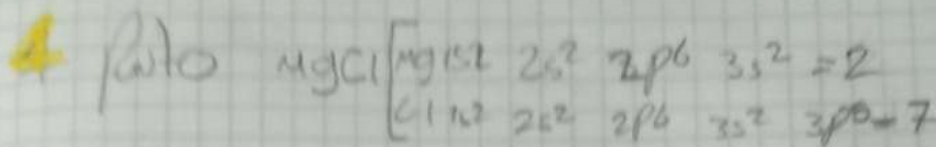 4 Punto MgCl [Mg 1s2 2s² 2p6 3s² = 2
[Cl 1s2 2s² 2p6 3s² 3p5 = 7